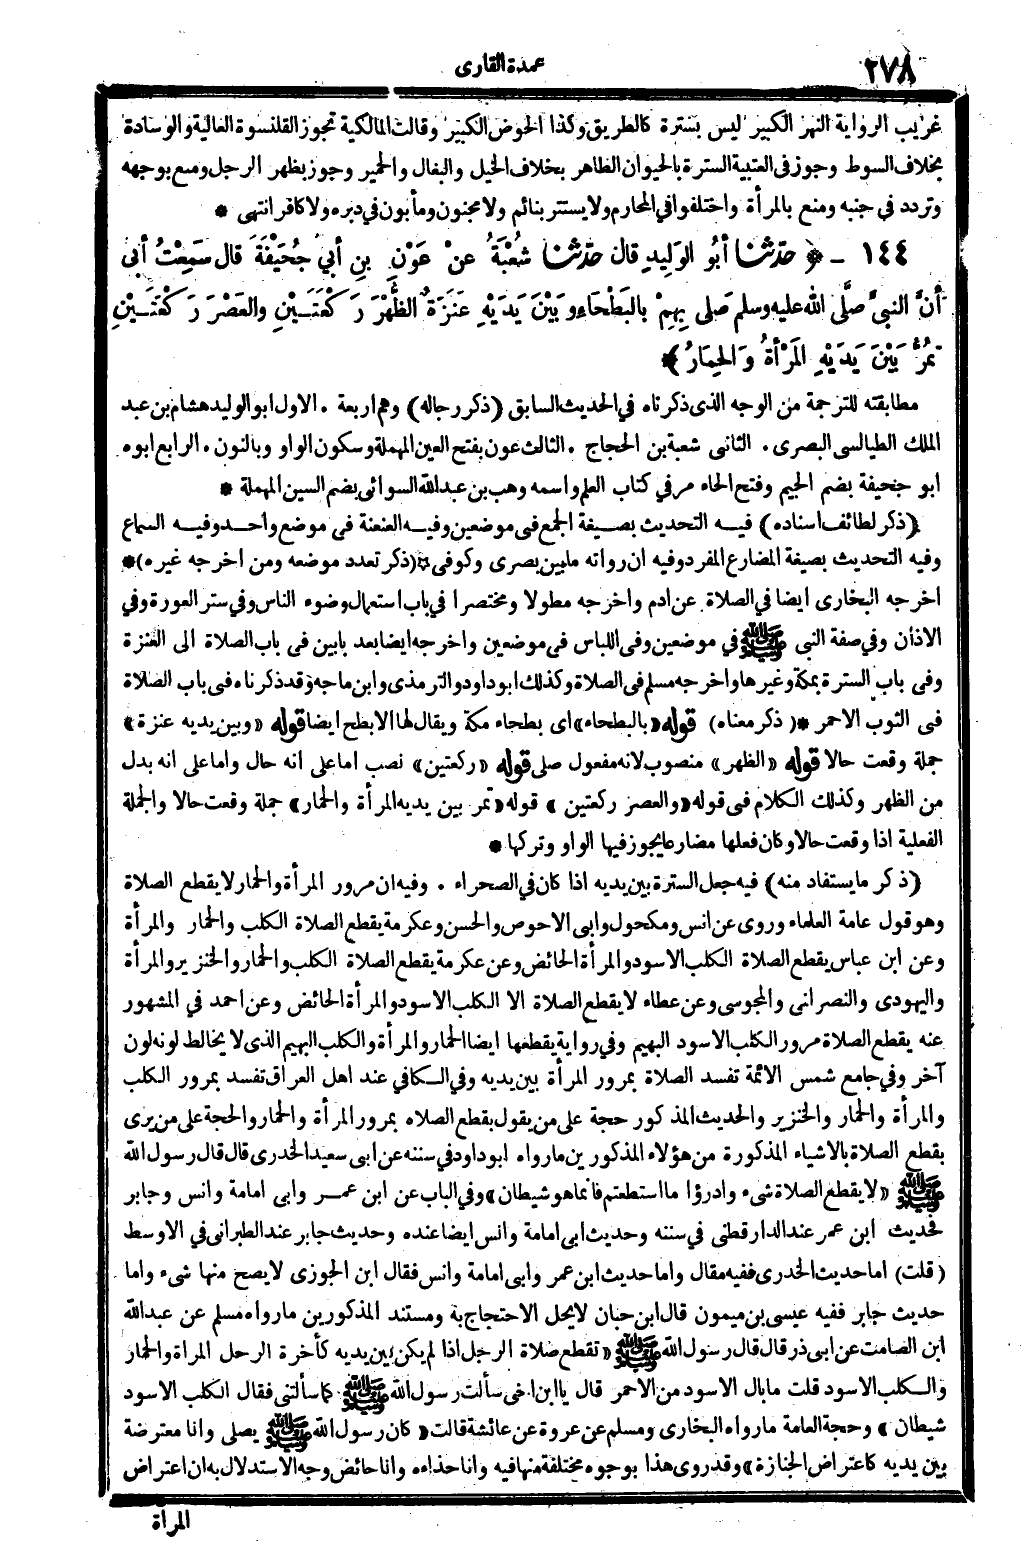 ٢٧٨
عمدة القارى
غريب الرواية النهر الكبير ليس بسترة كالطريق وكذا الحوض الكبير وقالت المالكية تجوز القلنسوة العالية والوسادة
بخلاف السوط وجوز فى العتبية السترة بالحيوان الطاهر بخلاف الخيل والبغال والحمير وجوز بظهر الرجل ومنع بوجهه
وتردد في جنبه ومنع بالمرأة واختلفوا في المحارم ولا يستتر بنائم ولا مجنون ومأبون في دبره ولا كافر انتهى *
١٤٤ - ﴿ حَدَّثَنَا أبُو الوَلِيدِ قال حَدَّثَنَا شُعْبَةُ عنْ عَوْنِ بنِ أبي جُحَيْفَةَ قال سَمِعْتُ أبى
أنَّ النبيَّ صلَّى الله عليه وسلم صَلى بِهِمْ بالبَطْحَاءِ وبَيْنَ يَدَيْهِ عَنَزَةٌ الظُّهْرَ رَكْعَتَيْنِ والعَصْرَ رَكْعَتَيْنِ
تَمُرُّ بَيْنَ يَدَيْهِ المَرْأةُ وَالحِمَارُ ﴾ *
مطابقته للترجمة من الوجه الذى ذكرناه في الحديث السابق (ذكر رجاله) وهم اربعة . الاول ابو الوليد هشام بن عبد
الملك الطيالسى البصرى . الثانى شعبة بن الحجاج . الثالث عون بفتح العين المهملة وسكون الواو وبالنون . الرابع ابوه
ابو جحيفة بضم الجيم وفتح الحاء مر في كتاب العلم واسمه وهب بن عبد الله السوائى بضم السين المهملة *
(ذكر لطائف اسناده) فيه التحديث بصيغة الجمع فى موضعين وفيه العنعنة فى موضع واحد وفيه السماع
وفيه التحديث بصيغة المضارع المفرد وفيه ان رواته ما بين بصرى وكوفى * (ذكر تعدد موضعه ومن اخرجه غيره) *
اخرجه البخارى ايضا في الصلاة عن ادم واخرجه مطولا ومختصرا في باب استعمال وضوء الناس وفي ستر العورة وفي
الاذان وفي صفة النبى ﷺ في موضعين وفى اللباس فى موضعين واخرجه ايضا بعد بابين فى باب الصلاة الى العنزة
وفى باب السترة بمكة وغيرها واخرجه مسلم فى الصلاة وكذلك ابو داود والترمذى وابن ماجه وقد ذكرناه فى باب الصلاة
فى الثوب الاحمر * (ذكر معناه) قوله «بالبطحاء» اى بطحاء مكة ويقال لها الابطح ايضا قوله «وبين يديه عنزة»
جملة وقعت حالا قوله «الظهر» منصوب لانه مفعول صلى قوله «ركعتين» نصب اما على انه حال واما على انه بدل
من الظهر وكذلك الكلام فى قوله «والعصر ركعتين» قوله «تمر بين يديه المرأة والحمار» جملة وقعت حالا والجملة
الفعلية اذا وقعت حالا وكان فعلها مضارعا يجوز فيها الواو وتركها *
(ذكر ما يستفاد منه) فيه جعل السترة بين يديه اذا كان في الصحراء . وفيه ان مرور المرأة والحمار لا يقطع الصلاة
وهو قول عامة العلماء وروى عن انس ومكحول وابى الاحوص والحسن وعكرمة يقطع الصلاة الكلب والحمار والمرأة
وعن ابن عباس يقطع الصلاة الكلب الاسود والمرأة الحائض وعن عكرمة يقطع الصلاة الكلب والحمار والخنزير والمرأة
واليهودى والنصرانى والمجوسى وعن عطاء لا يقطع الصلاة الا الكلب الاسود والمرأة الحائض وعن احمد في المشهور
عنه يقطع الصلاة مرور الكلب الاسود البهيم وفي رواية يقطعها ايضا الحمار والمرأة والكلب البهيم الذى لا يخالط لونه لون
آخر وفي جامع شمس الائمة تفسد الصلاة بمرور المرأة بين يديه وفي الكافي عند اهل العراق تفسد بمرور الكلب
والمرأة والحمار والخنزير والحديث المذكور حجة على من يقول بقطع الصلاه بمرور المرأة والحمار والحجة على من يرى
بقطع الصلاة بالاشياء المذكورة من هؤلاء المذكورين ما رواه ابو داود في سننه عن ابى سعيد الخدرى قال قال رسول الله
ﷺ «لا يقطع الصلاة شىء وادرؤا ما استطعتم فانما هو شيطان» وفي الباب عن ابن عمر وابى امامة وانس وجابر
فحديث ابن عمر عند الدارقطنى في سننه وحديث ابى امامة وانس ايضا عنده وحديث جابر عند الطبرانى في الاوسط
(قلت) اما حديث الخدرى ففيه مقال واما حديث ابن عمر وابى امامة وانس فقال ابن الجوزى لا يصح منها شىء واما
حديث جابر ففيه عيسى بن ميمون قال ابن حبان لا يحل الاحتجاج به ومستند المذكورين ما رواه مسلم عن عبد الله
ابن الصامت عن ابى ذر قال قال رسول الله ﷺ «تقطع صلاة الرجل اذا لم يكن بين يديه كآخرة الرحل المرأة والحمار
والكلب الاسود قلت ما بال الاسود من الاحمر قال يا ابن اخى سألت رسول الله ﷺ كما سألتنى فقال الكلب الاسود
شيطان» وحجة العامة ما رواه البخارى ومسلم عن عروة عن عائشة قالت «كان رسول الله ﷺ يصلى وانا معترضة
بين يديه كاعتراض الجنازة» وقد روى هذا بوجوه مختلفة منها فيه وانا حذاءه وانا حائض وجه الاستدلال به ان اعتراض
المرأة